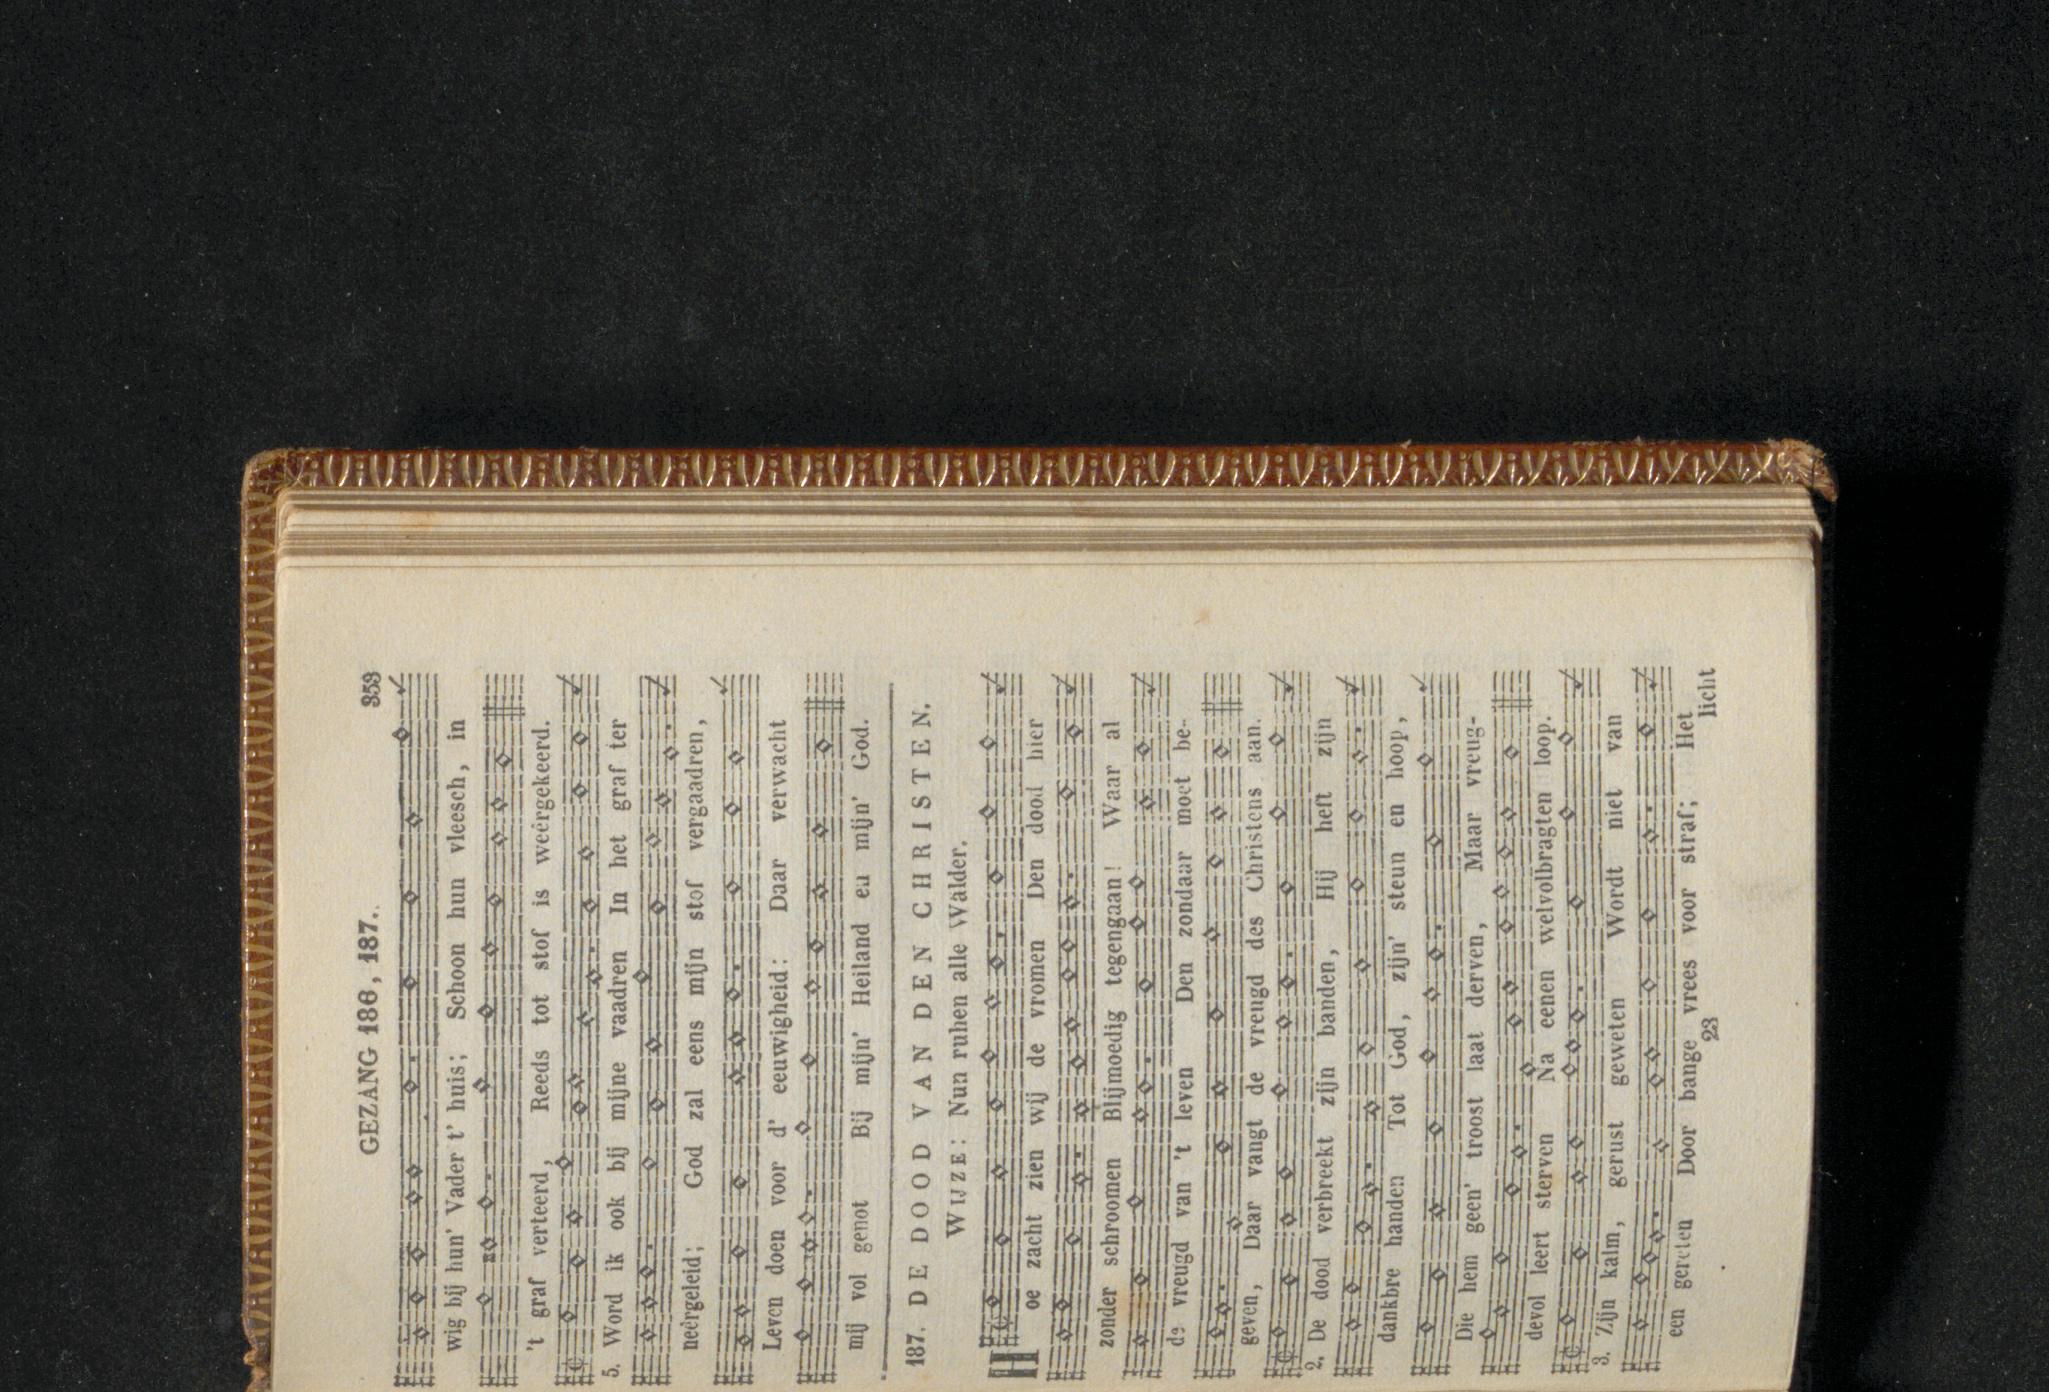 GEZANG 186, 187. 353
wig bij hun' Vader t' huis; Schoon hun vleesch, in
't graf verteerd, Reeds tot stof is weêrgekeerd.
5. Word ik ook bij mijne vaadren In het graf ter
neêrgeleid; God zal eens mijn stof vergaadren,
Leven doen voor d' eeuwigheid: Daar verwacht
mij vol genot Bij mijn' Heiland en mijn' God.
187. DE DOOD VAN DEN CHRISTEN.
WIJZE: Nun ruhen alle Walder.
Hoe zacht zien wij de vromen Den dood hier
zonder schroomen Blijmoedig tegengaan! Waar al
de vreugd van 't leven Den zondaar moet be-
geven, Daar vangt de vreugd des Christens aan.
2. De dood verbreekt zijn banden, Hij heft zijn
dankbre handen Tot God, zijn' steun en hoop,
Die hem geen' troost laat derven, Maar vreug-
devol leert sterven Na eenen welvolbragten loop.
3. Zijn kalm, gerust geweten Wordt niet van
een gereten Door bange vrees voor straf; Het
23 licht